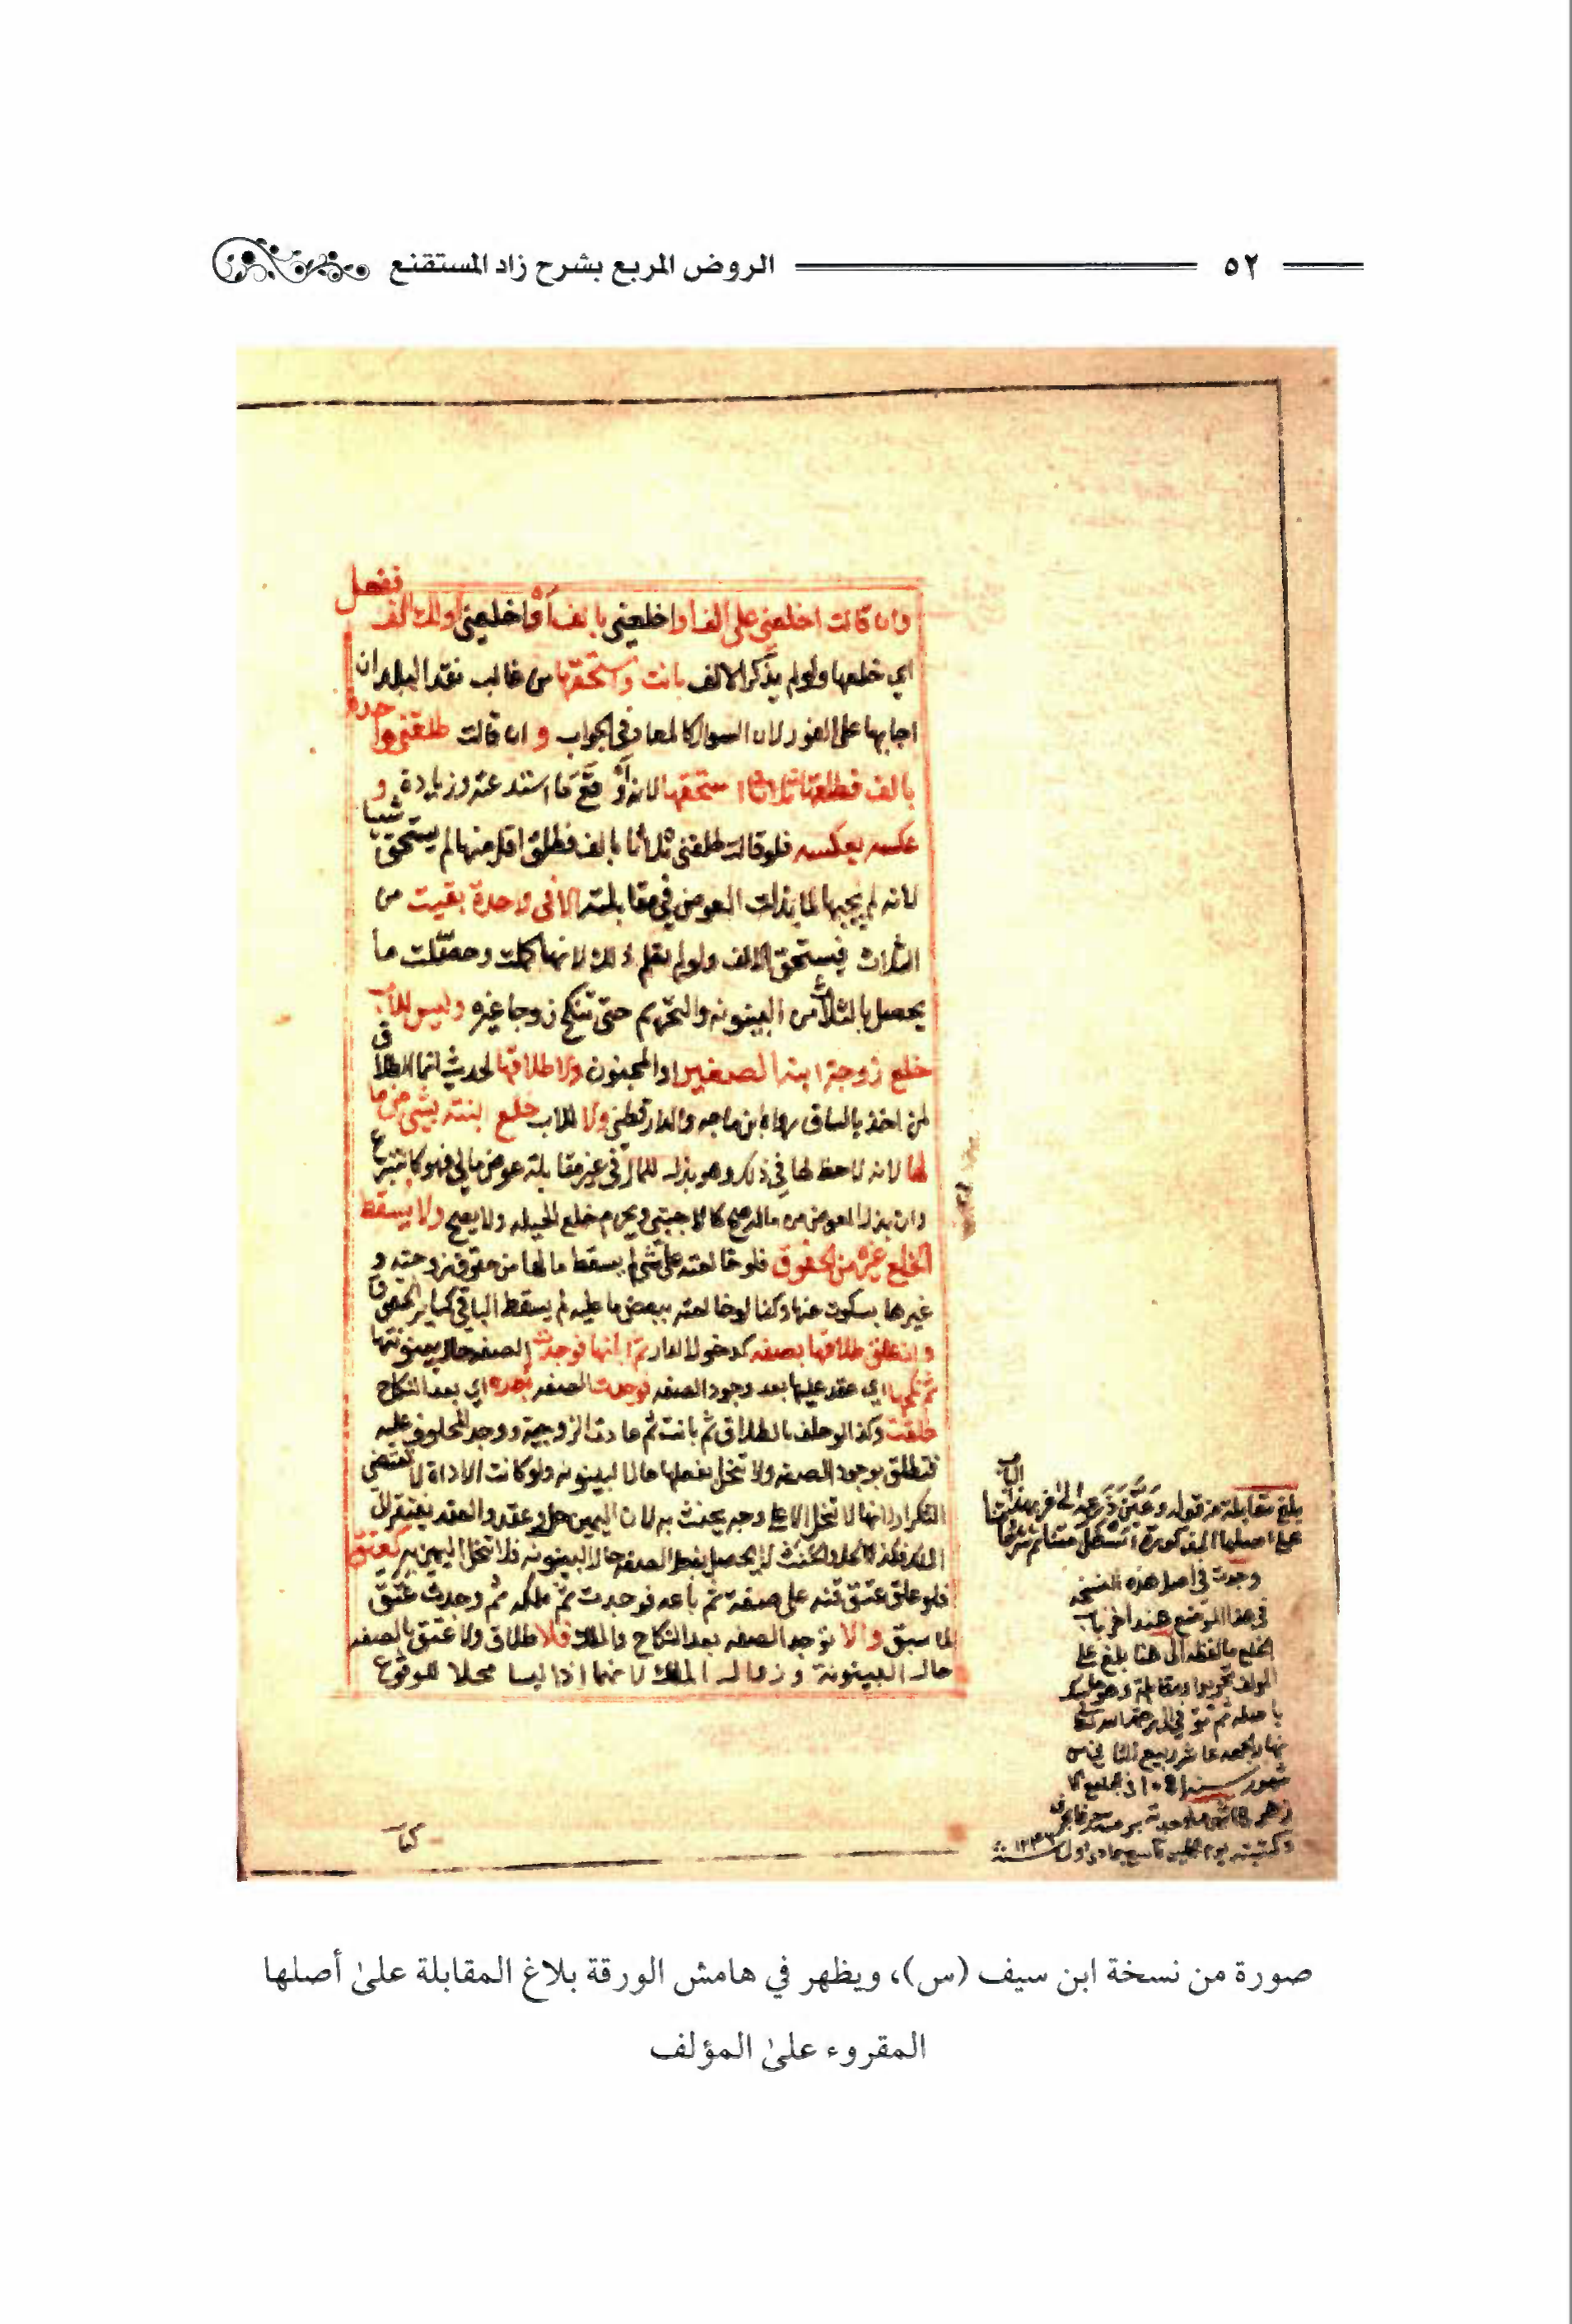 ٥٢ الروض المربع بشرح زاد المستقنع
ففعل
وان قالت اخلعني على الف او اخلعني بالف أو اخلعني ولك الف
اي خلعها ولو لم يذكر الالف بانت واستحقها من غالب نقد البلد ان
اجابها على الفور لان السوال كالمعاد في الجواب و ان قالت طلقني واحدة
بالف فطلقها ثلاثا استحقها لانه أوقع ما استدعته وزيادة و
عكسه بعكسه فلو قالت طلقني ثلاثا بالف فطلق اقل منها لم يستحق شيا
لانه لم يجبها لما بذلت العوض في مقابلته الا في واحدة بقيت من
الثلاث فيستحق الالف ولو لم تعلم ذلك لانها كملت وحصّلت ما
يحصل بالثلاث من البينونه والتحريم حتى تنكح زوجا غيره وليس للاب
خلع زوجة ابنه الصغير او المجنون ولا طلاقها لحديث انما الطلاق
لمن اخذ بالساق رواه ابن ماجه والدارقطني ولا للاب خلع ابنته بشي من ما
لها لانه لا حظ لها في ذلك وهو بذل للمال في غير مقابلة عوض مالي فهو كالتبرع
وان بذل العوض من ماله صح كالاجنبي ويحرم خلع الحيله ولا يصح ولا يسقط
الخلع غيره من الحقوق فلو خالعته على شي لم يسقط ما لها من حقوق زوجيته و
غيرها بسكوت عنها وكذا لو خالعته ببعض ما عليه لم يسقط الباقي كساير الحقوق
وان علق طلاقها بصفه كدخول الدار ثم ابانها فوجدت الصفه حال بينونتها
ثم نكحها اي عقد عليها بعد وجود الصفه فوجدت الصفه بعده اي بعد النكاح
طلقت وكذا لو حلف بالطلاق ثم بانت ثم عادت الزوجية ووجد المحلوف عليه
فتطلق بوجود الصفه ولا تنحل بفعلها حال البينونه ولو كانت الاداة لا تقتضي
التكرار لانها لا تنحل الا على وجه يحنث به لان اليمين حل وعقد والعقد يفتقر الى
الملك فكذا الحل والحنث لا يحصل بفعل الصفه حال البينونه فلا تنحل اليمين به كعتق
فلو علق عتق قنه على صفة ثم باعه فوجدت ثم ملكه ثم وجدت عتق
لما سبق والا توجد الصفه بعد النكاح والملك فلا طلاق ولا عتق بالصفه
حال البينونة وزوال الملك لانهما اذا ليسا محلا للوقوع
كتاب
بلغ مقابلة من قوله الى اخر هذا الباب
على اصلها المذكورة
وجدت في اصل هذه النسخه
في هذا الموضع عند اخر باب
الخلع ما لفظه الى هنا بلغ على
المولف تحريرا ومقابلة
باصله ثم توفي الى رحمة الله تعالى
نهار الجمعه عاشر ربيع الثاني من
شهور سنة ١٠٥١ في الجامع الا
زهر
وكتبته يوم
صورة من نسخة ابن سيف (س)، ويظهر في هامش الورقة بلاغ المقابلة علىٰ أصلها
المقروء علىٰ المؤلف